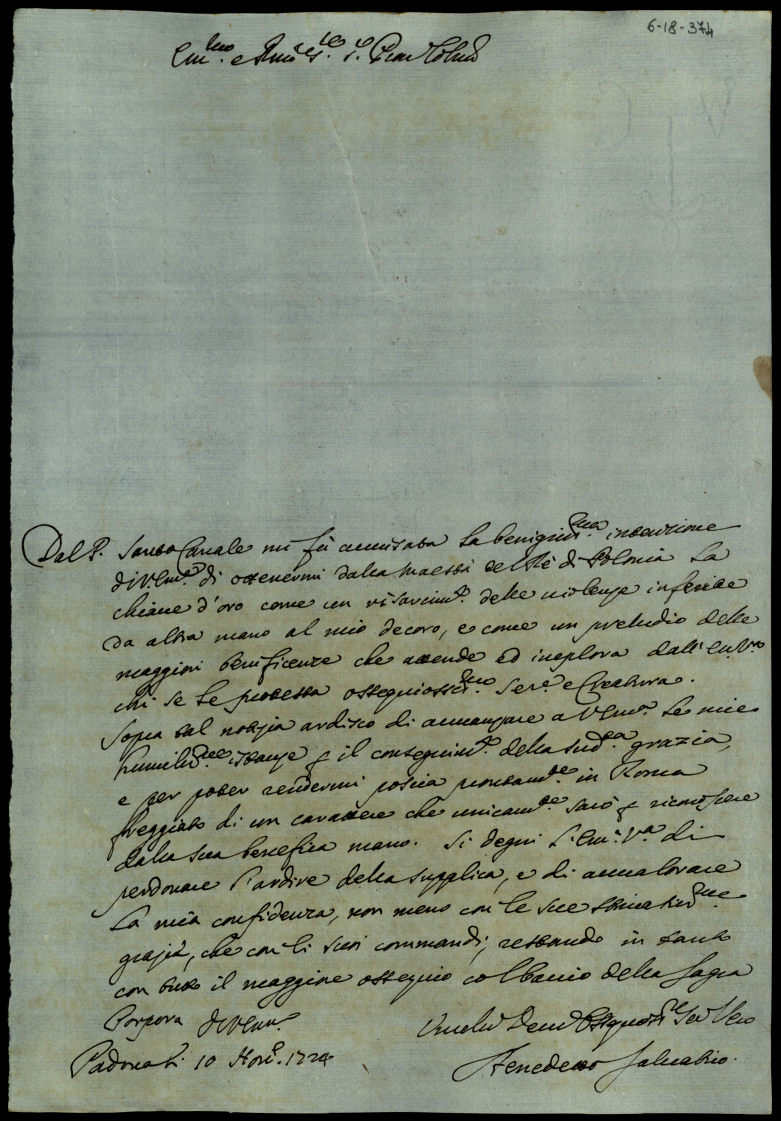 6-18-374
Em.mo e Rmo S.re S.r P.ron Colmo
Dal P. Canale mi fù avvisata la benigniss.ma intenzione
di V. Em.a di ottenermi dalla Maestà del Rè di Polonia la
chiave d'oro come un risarcim.to delle violenze inferite
da altra mano al mio decoro, e come un preludio delle
maggiori beneficenze che attende ed implora dall'Em. V.ra
chi se le protesta ossequiosiss.mo Ser.e e Creatura.
Sopra tal notizia ardisco di avvanzare a V. Em.a le mie
humiliss.me istanze p il conseguim.to della sud.ta grazia,
e per poter rendermi poscia prontam.te in Roma
freggiato di un carattere che unicam.te sarò p riconoscere
dalla sua benefica mano. Si degni l'Em. V.a di
perdonare l'ardire della supplica, e di avvalorare
la mia confidenza, non meno con le sue
grazie, che con li suoi commandi, restando in tanto
con tutto il maggiore ossequio col baccio della Sagra
Porpora di V. Em.a
Padova li 10 Nov.e 1724
Umiliss Devotiss Ossequios.e Ser Vero
Benedetto Salvatico.